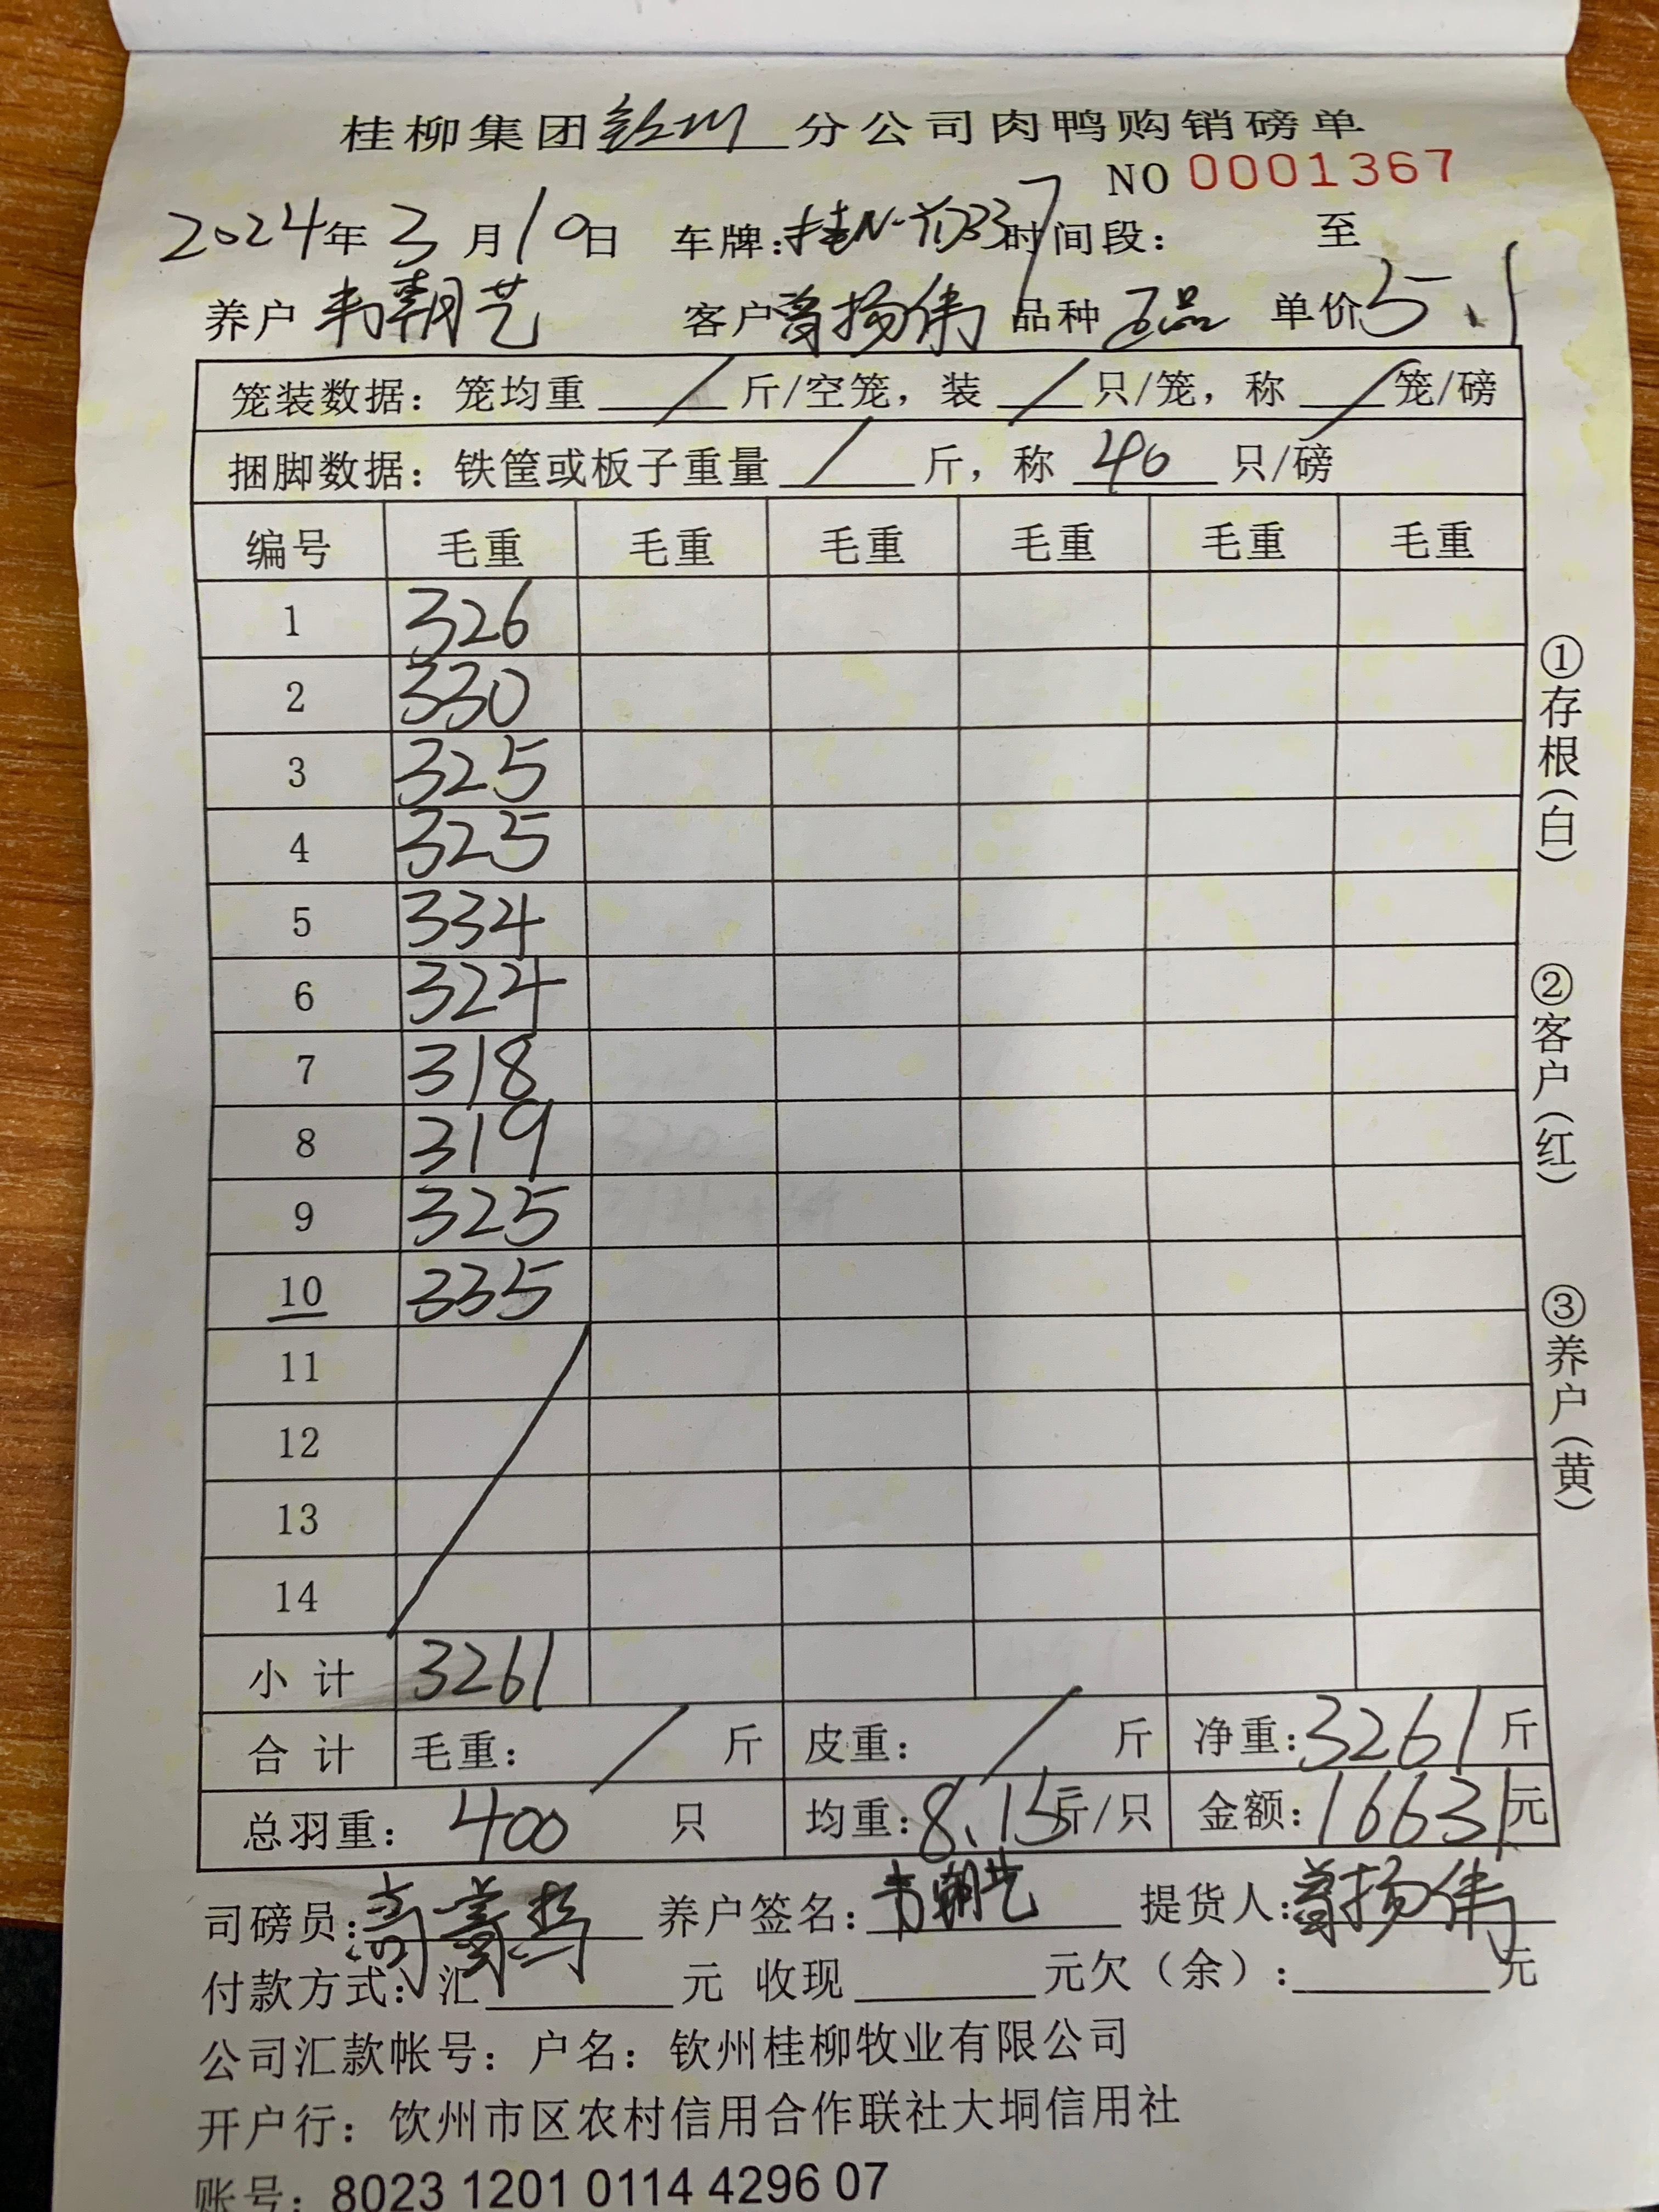 桂柳集团钦州分公司肉鸭购销磅单
NO 0001367
2024年3月10日 车牌: 时间段: 至
养户 韦朝艺 客户 曾扬伟 品种 单价5.1
笼装数据: 笼均重 / 斤/空笼, 装 / 只/笼, 称 / 笼/磅
捆脚数据: 铁筐或板子重量 / 斤, 称 40 只/磅
编号 毛重 毛重 毛重 毛重 毛重 毛重
1 326
2 330
3 325
4 325
5 334
6 324
7 318
8 319
9 325
10 335
11
12
13
14
小计 3261
合计 毛重: / 斤 皮重: / 斤 净重: 3261 斤
总羽重: 400 只 均重: 8.15斤/只 金额: 16631元
司磅员: 养户签名: 韦朝艺 提货人: 曾扬伟
付款方式: 汇 元 收现 元欠(余): 元
公司汇款帐号: 户名: 钦州桂柳牧业有限公司
开户行: 钦州市区农村信用合作联社大垌信用社
账号: 8023 1201 0114 4296 07
①存根(白)
②客户(红)
③养户(黄)